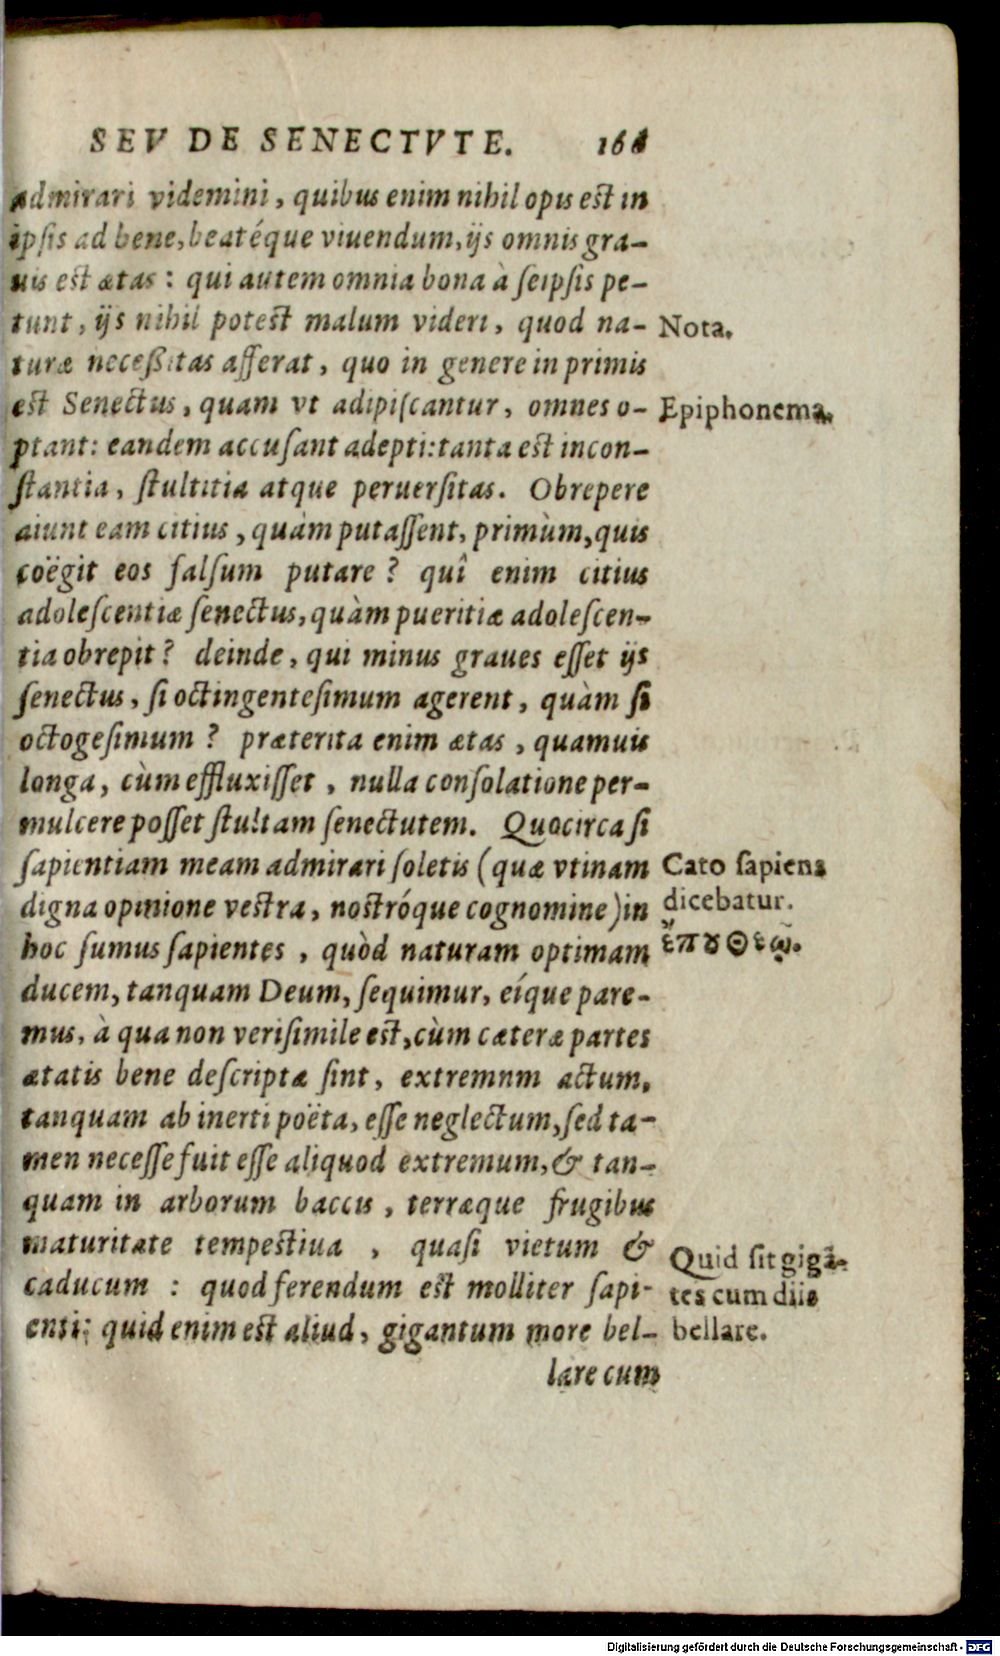 SEV DE SENECTVTE. 161
admirari videmini, quibus enim nihil opis est in
ipsis ad bene, beatéque viuendum, ijs omnis gra-
uis est ætas: qui autem omnia bona à seipsis pe-
tunt, ijs nihil potest malum videri, quod na-
Nota.
turæ necessitas afferat, quo in genere in primis
est Senectus, quam vt adipiscantur, omnes o-
Epiphonema.
ptant: eandem accusant adepti: tanta est incon-
stantia, stultitia atque peruersitas. Obrepere
aiunt eam citius, quàm putassent, primùm, quis
coëgit eos falsum putare? quî enim citius
adolescentiæ senectus, quàm pueritiæ adolescen-
tia obrepit? deinde, qui minus graues esset ijs
senectus, si octingentesimum agerent, quàm si
octogesimum? præterita enim ætas, quamuis
longa, cùm effluxisset, nulla consolatione per-
mulcere posset stultam senectutem. Quocirca si
sapientiam meam admirari soletis (quæ vtinam
Cato sapiens
digna opinione vestra, nostróque cognomine) in
dicebatur.
hoc sumus sapientes, quòd naturam optimam
ducem, tanquam Deum, sequimur, eíque pare-
mus, à qua non verisimile est, cùm cæteræ partes
ætatis bene descriptæ sint, extremnm actum,
tanquam ab inerti poëta, esse neglectum, sed ta-
men necesse fuit esse aliquod extremum, & tan-
quam in arborum baccis, terræque frugibus
maturitate tempestiua, quasi vietum &
Quid sit gigã-
caducum: quod ferendum est molliter sapi-
tes cum diis
enti: quid enim est aliud, gigantum more bel-
bellare.
lare cum
Digitalisierung gefördert durch die Deutsche Forschungsgemeinschaft - DFG